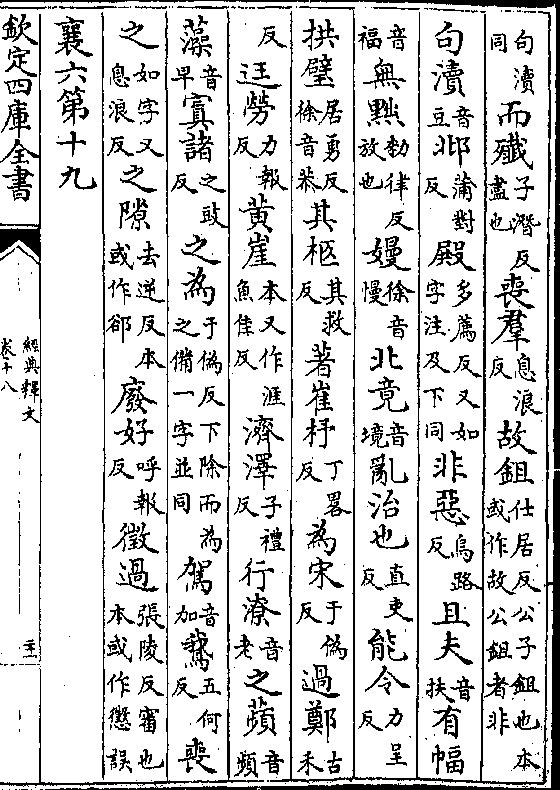 句瀆同而殲子潛反盡也喪羣息浪反故鉏仕居反公子鉏也本或作故公鉏者非
句瀆音豆邶蒲對反殿多薦反又如字注及下同非惡烏路反且夫音扶有幅
音福無黜勑律反放也嫚徐音慢北竟音境亂治也直吏反能令力呈反
拱璧居勇反徐音恭其柩其救反著崔杼丁畧反為宋于偽反過鄭古禾
反迋勞力報反黃崖本又作涯魚佳反濟澤子禮反行潦音老之蘋音頻
藻音早寘諸之豉反之為于偽反下除而為之備一字並同駕音加鵞五何反喪
之如字又息浪反之隙去逆反本或作郤廢好呼報反徵過張陵反審也本或作懲誤
襄六第十九
欽定四庫全書
經典釋文
卷十八